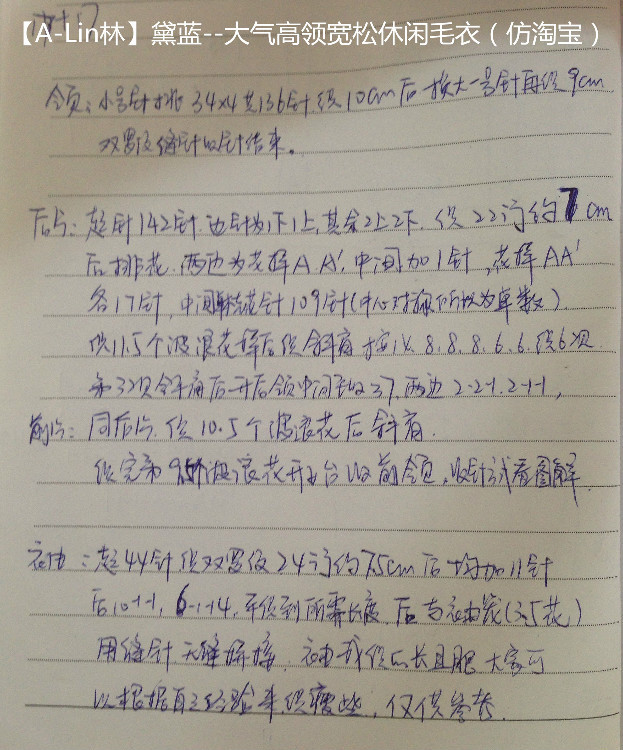 【A-Lin林】黛蓝--大气高领宽松休闲毛衣（仿淘宝）
领：小号针挑34×4共136针织10cm后换大一号针再织9cm
双罗纹缝针收针结束。
后片：起针142针.边针为1下1上,其余2上2下.织22行约7cm
后排花.两边为花样A A',中间加1针,花样AA'
各17针,中间桂花针109针(中心对称所以为单数).
织11.5个波浪花样后织斜肩 按 8.8.8.6.6.织6次
第3次斜肩后开后领中间平收37,两边2-2-1.2-1-1,
前片：同后片.织10.5个波浪花后斜肩.
织完第 波浪花开始收前领,收针请看图解.
袖：起44针织双罗纹24行约7.5cm后均加11针
后10-1-1,6-1-14,平织到所需长度.后与袖笼(3.5花)
用缝针无缝拼接.袖我织的长且肥 大家可
以根据自己经验来织瘦些,仅供参考.